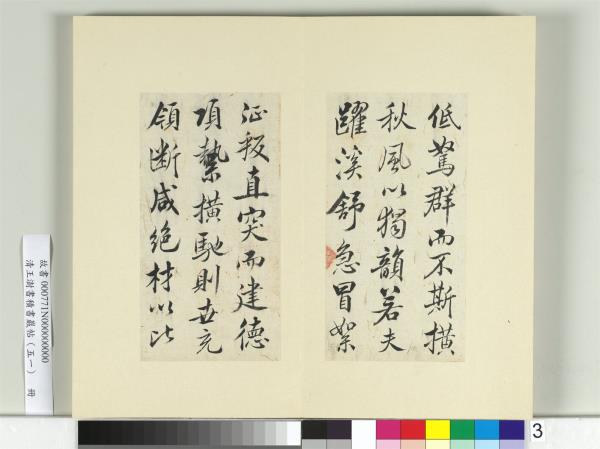 低駑群而不斯橫
秋風以獨韻若夫
躍溪舒急冒絮
征叛直突而建德
項縶橫馳則世充
領斷咸絕材以比
故書 000771N000000000
清王澍書積書巖帖（五一） 冊
3